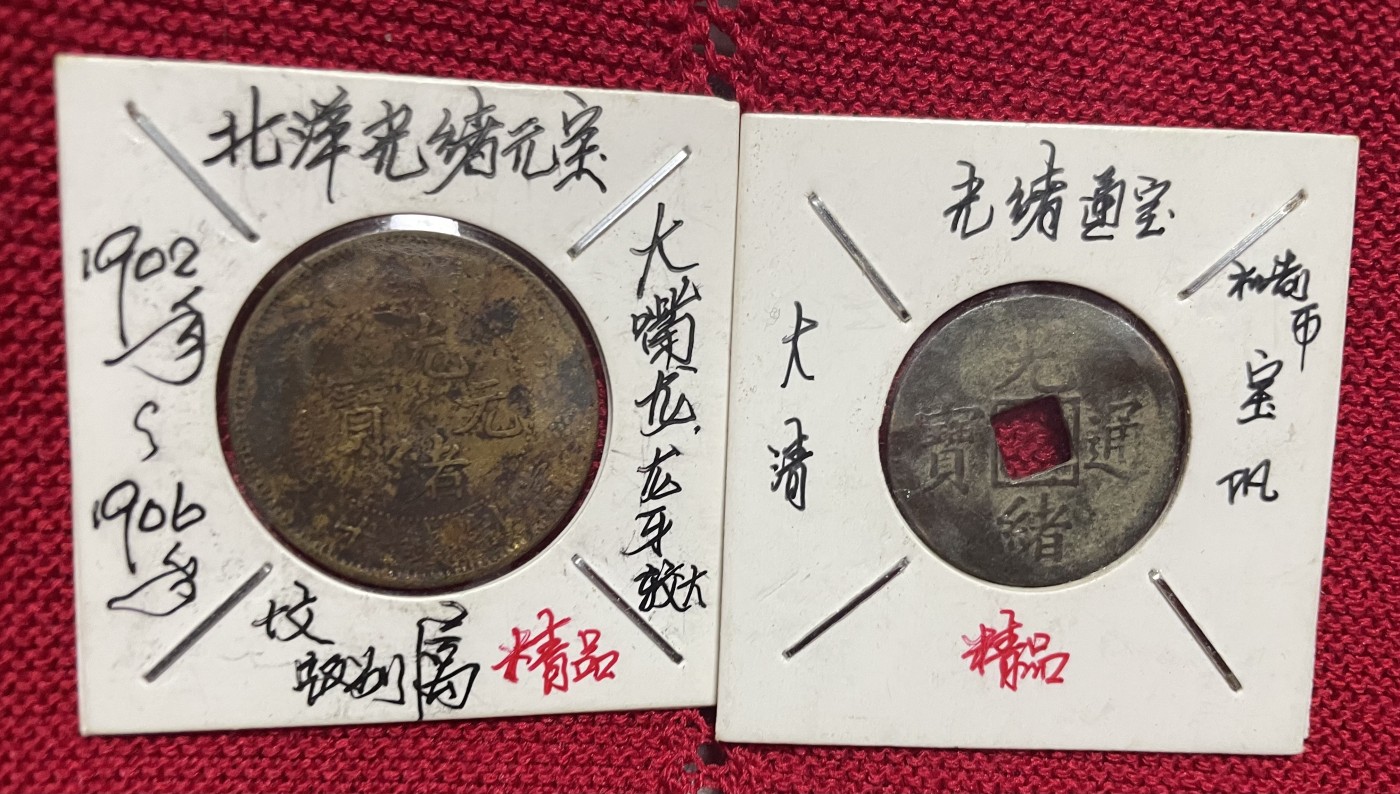 北洋光绪元宝
1902年
～
1906年
大嘴龙,龙牙较大
版别
精品
光
元
寶
緒
光绪通宝
大清
机制币
宝
精品
光
通
寶
緒